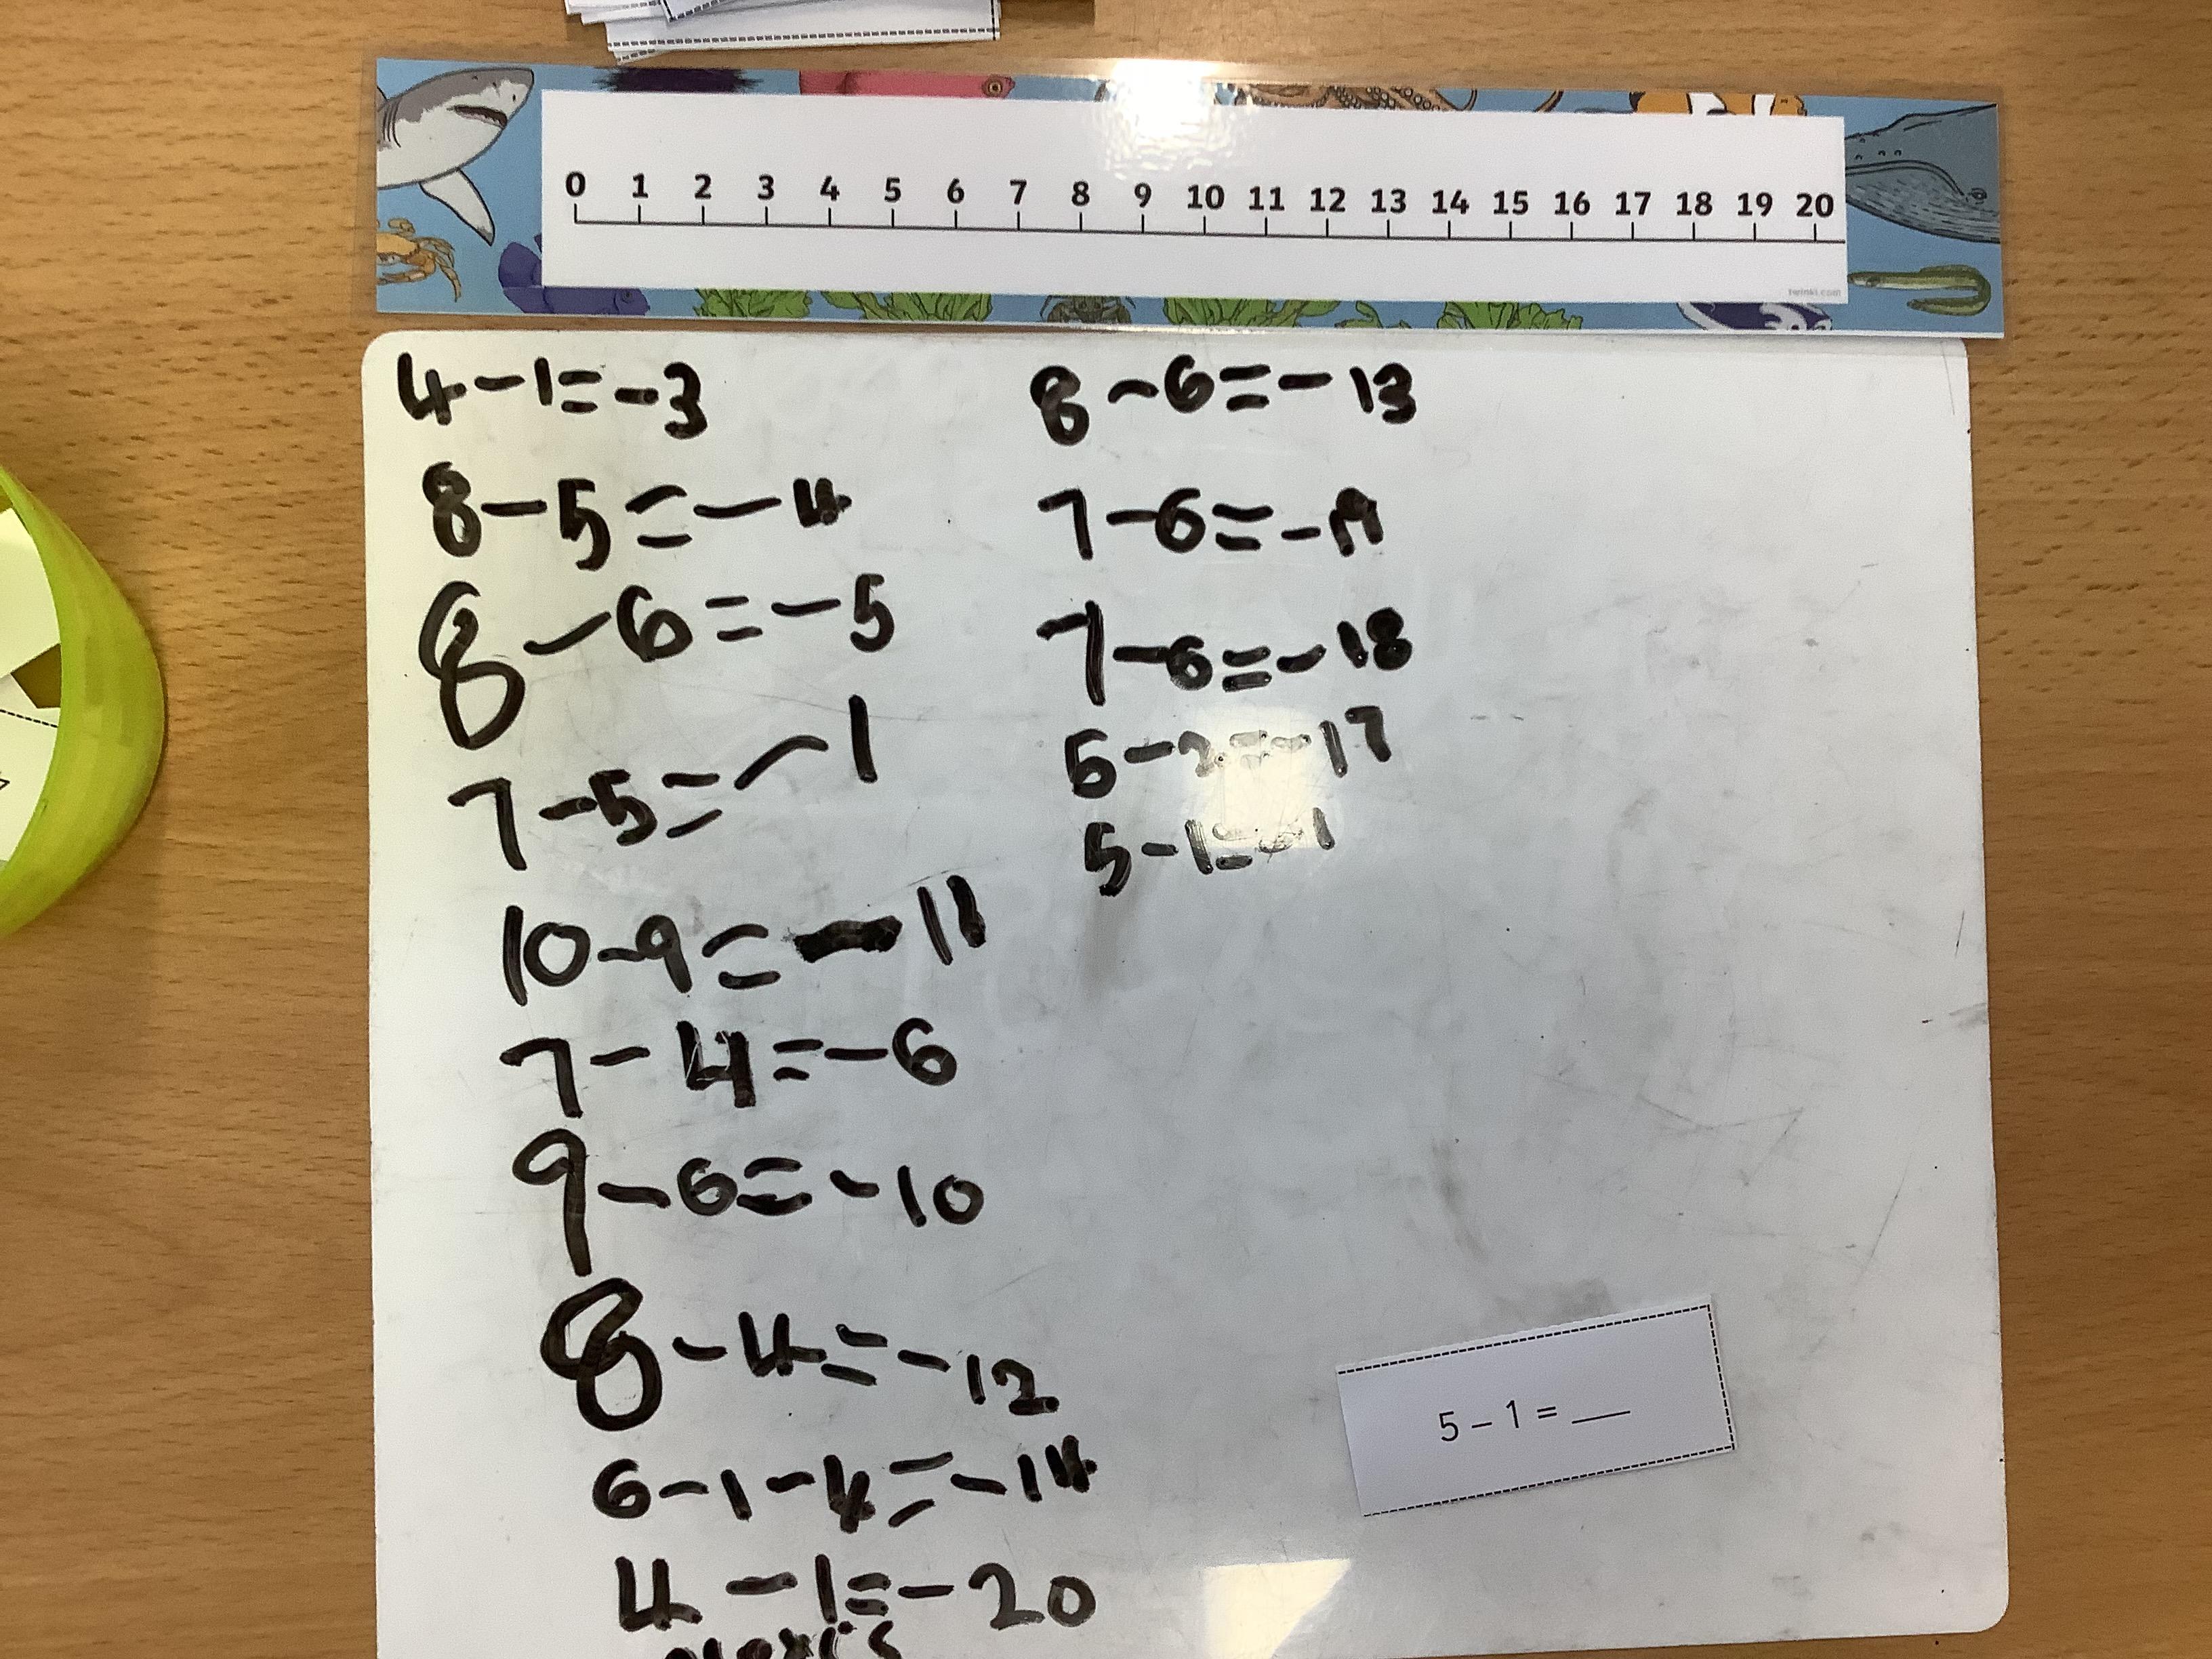 0 1 2 3 4 5 6 7 8 9 10 11 12 13 14 15 16 17 18 19 20
twinkl.com
4-1=-3
8-5=-4
8-6=-5
7-5=-1
10-9=-11
7-4=-6
9-6=-10
8-4=-12
6-1-4=-14
4-1=-20
8-6=-13
7-6=-
7-6=-18
5-2=-17
5-1=-1
5 – 1 = ___